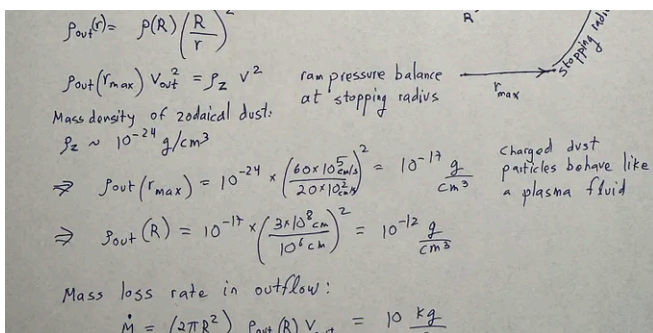 ρout(r) = ρ(R) (R/r)²
R
stopping radiu
rmax
ρout(rmax) Vout² = ρz V²
ram pressure balance
at stopping radius
Mass density of zodaical dust:
ρz ~ 10⁻²⁴ g/cm³
⇒ ρout(rmax) = 10⁻²⁴ × (60×10⁵ cm/s / 20×10² cm/s)² = 10⁻¹⁷ g/cm³
Charged dust
particles behave like
a plasma fluid
⇒ ρout(R) = 10⁻¹⁷ × (3×10⁸ cm / 10⁶ cm)² = 10⁻¹² g/cm³
Mass loss rate in outflow:
Ṁ = (2πR²) ρout(R) Vout = 10 kg